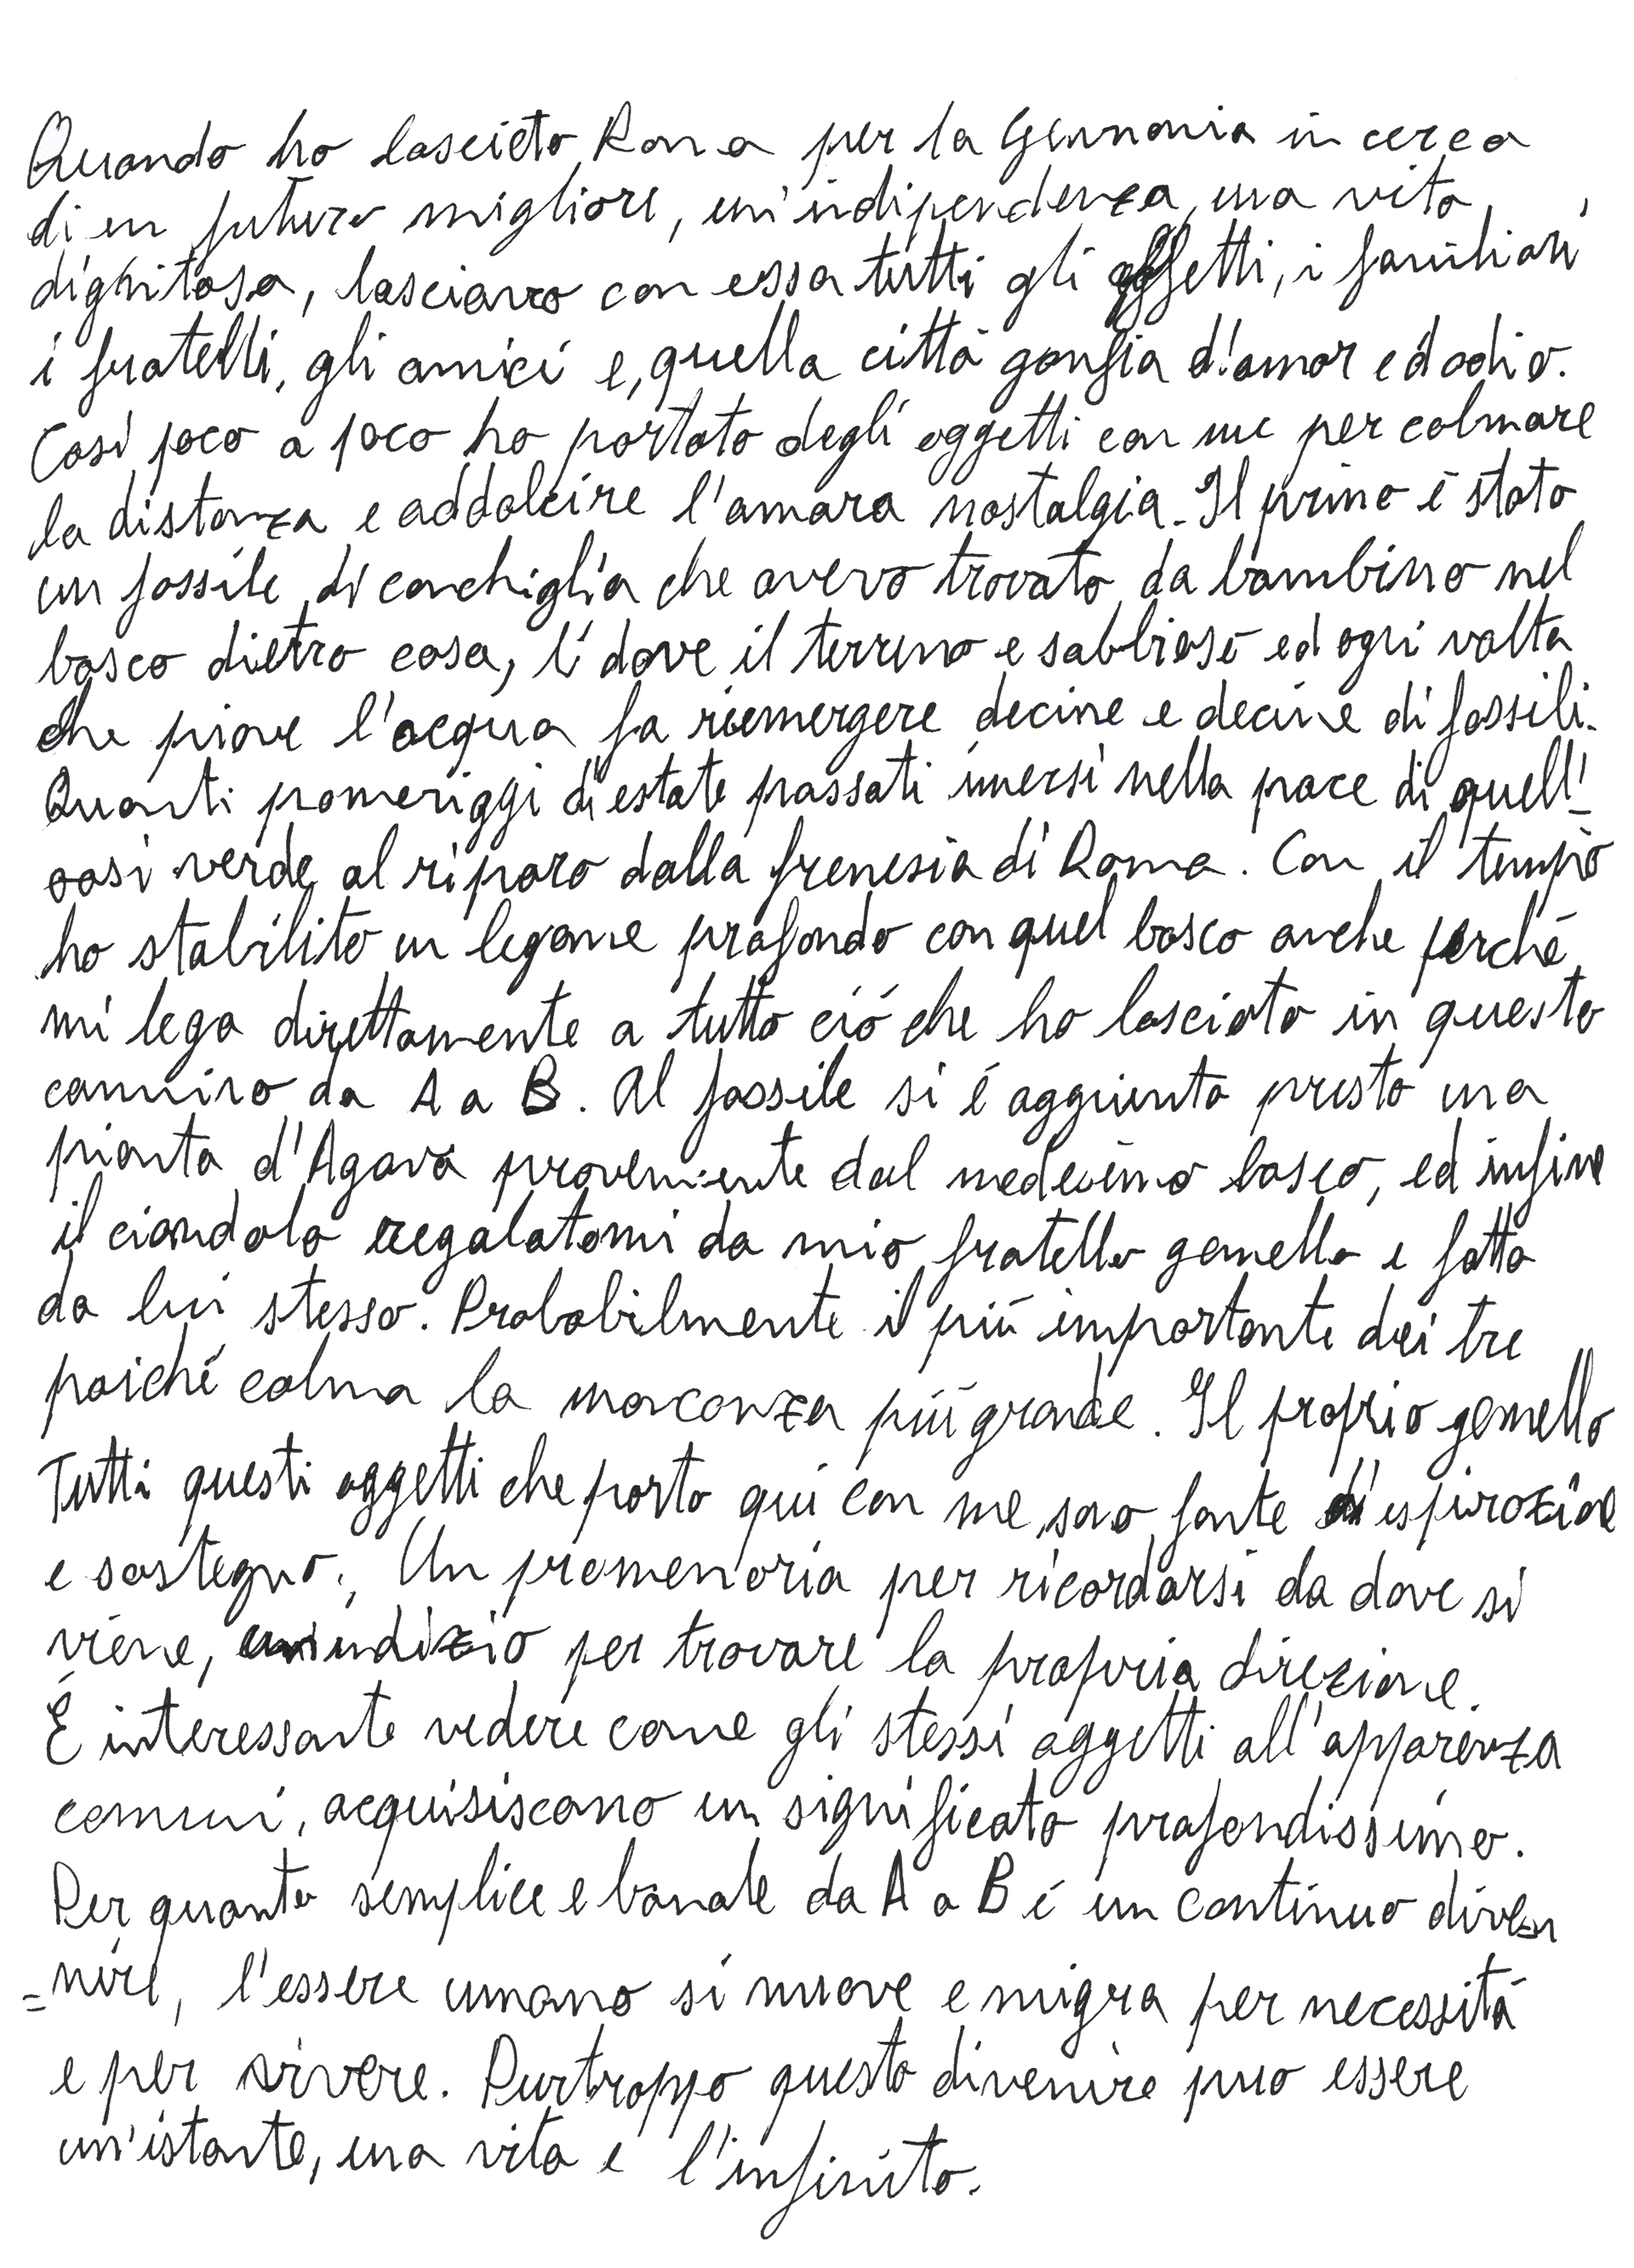 Quando ho lasciato Roma per la Germania in cerca
di un futuro migliore, un'indipendenza, una vita
dignitosa, lasciavo con essa tutti gli affetti, i familiari,
i fratelli, gli amici e, quella città gonfia d'amor ed odio.
Così poco a poco ho portato degli oggetti con me per colmare
la distanza e addolcire l'amara nostalgia. Il primo è stato
un fossile di conchiglia che avevo trovato da bambino nel
bosco dietro casa, lí dove il terreno e sabbioso ed ogni volta
che piove l'acqua fa riemergere decine e decine di fossili.
Quanti pomeriggi di estate passati imersi nella pace di quell'
oasi verde al riparo dalla frenesia di Roma. Con il tempo
ho stabilito un legame profondo con quel bosco anche perché
mi lega direttamente a tutto ció che ho lasciato in questo
cammino da A a B. Al fossile si é aggiunta presto una
pianta d'Agava proveniente dal medesimo bosco, ed infine
il ciondolo regalatomi da mio fratello gemello e fatto
da lui stesso. Probabilmente il più importante dei tre
poiché colma la mancanza più grande. Il proprio gemello
Tutti questi oggetti che porto qui con me, sono fonte di ispirazione
e sostegno. Un promemoria per ricordarsi da dove si
viene, un indizio per trovare la propria direzione.
É interessante vedere come gli stessi oggetti all'apparenza
comuni, acquisiscano un significato profondissimo.
Per quanto semplice e banale da A a B é un continuo diven
=nire, l'essere umano si muove e migra per necessità
e per vivere. Purtroppo questo divenire puo essere
un'istante, una vita e l'infinito.